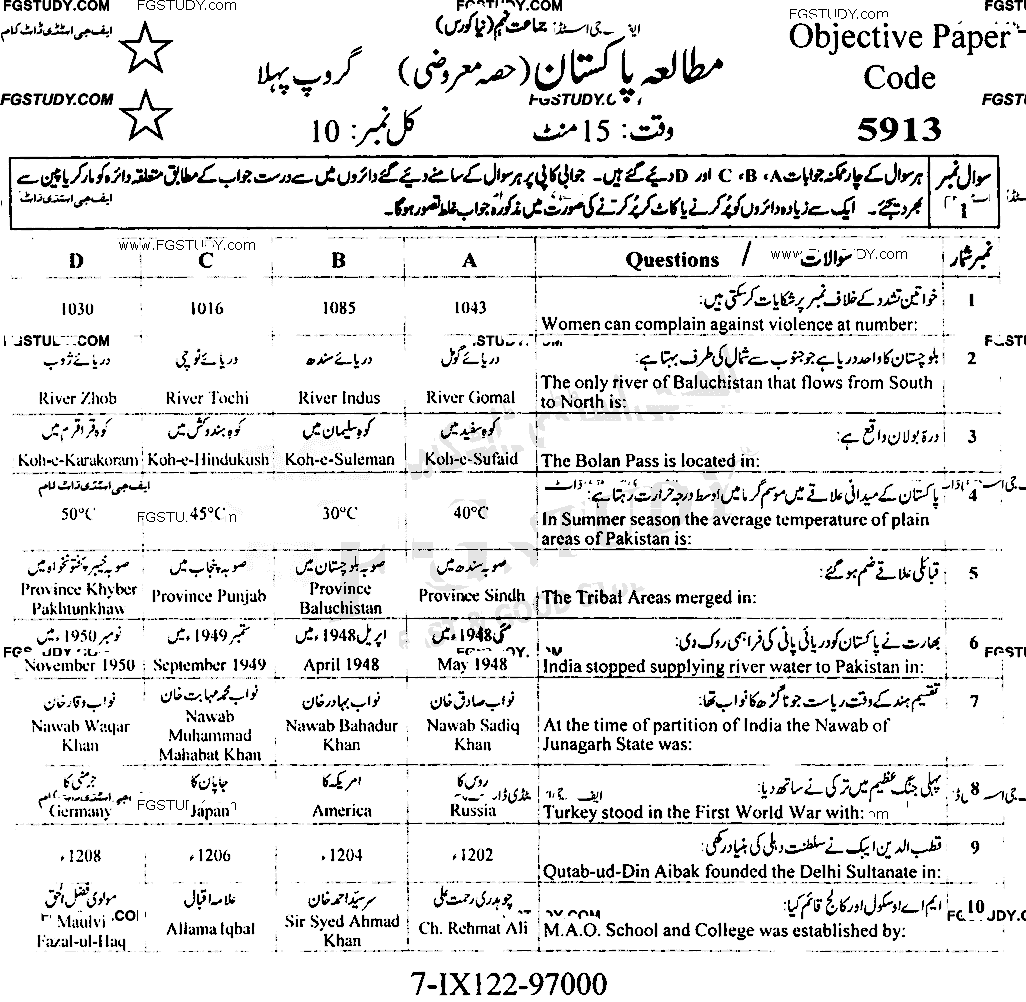 FGSTUDY.COM
FGSTUDY.COM
FGSTUDY.COM
ایف جی اسٹڈی ڈاٹ کام
جماعت نہم (نیا کورس)
Objective Paper
Code
5913
مطالعہ پاکستان (حصہ معروضی) گروپ پہلا
FGSTUDY.COM
وقت: 15 منٹ
کل نمبر: 10
سوال نمبر 1
ہر سوال کے چار ممکنہ جوابات A، B، C اور D دیئے گئے ہیں۔ جوابی کاپی پر ہر سوال کے سامنے دیئے گئے دائروں میں سے درست جواب کے مطابق متعلقہ دائرہ کو مارکر یا پین سے
بھر دیجئے۔ ایک سے زیادہ دائروں کو پُر کرنے یا کاٹ کر پُر کرنے کی صورت میں مذکورہ جواب غلط تصور ہوگا۔
www.FGSTUDY.com
D C B A Questions / سوالات نمبر شمار
1 خواتین تشدد کے خلاف نمبر پر شکایات کر سکتی ہیں:
Women can complain against violence at number:
1030 1016 1085 1043
2 بلوچستان کا واحد دریا ہے جو جنوب سے شمال کی طرف بہتا ہے:
The only river of Baluchistan that flows from South
to North is:
دریائے ژوب دریائے ٹوچی دریائے سندھ دریائے گومل
River Zhob River Tochi River Indus River Gomal
3 درہ بولان واقع ہے:
The Bolan Pass is located in:
کوہ قراقرم میں کوہ ہندوکش میں کوہ سلیمان میں کوہ سفید میں
Koh-e-Karakoram Koh-e-Hindukush Koh-e-Suleman Koh-e-Sufaid
4 پاکستان کے میدانی علاقے میں موسم گرما میں اوسط درجہ حرارت رہتا ہے:
In Summer season the average temperature of plain
areas of Pakistan is:
50°C 45°C 30°C 40°C
5 قبائلی علاقے ضم ہو گئے:
The Tribal Areas merged in:
صوبہ خیبر پختونخواہ میں صوبہ پنجاب میں صوبہ بلوچستان میں صوبہ سندھ میں
Province Khyber Pakhtunkhaw Province Punjab Province Baluchistan Province Sindh
6 بھارت نے پاکستان کو دریائی پانی کی فراہمی روک دی:
India stopped supplying river water to Pakistan in:
نومبر 1950ء میں ستمبر 1949ء میں اپریل 1948ء میں مئی 1948ء میں
November 1950 September 1949 April 1948 May 1948
7 تقسیم ہند کے وقت ریاست جوناگڑھ کا نواب تھا:
At the time of partition of India the Nawab of
Junagarh State was:
نواب وقار خان نواب محمد مہابت خان نواب بہادر خان نواب صادق خان
Nawab Waqar Khan Nawab Muhammad Mahabat Khan Nawab Bahadur Khan Nawab Sadiq Khan
8 پہلی جنگ عظیم میں ترکی نے ساتھ دیا:
Turkey stood in the First World War with:
جرمنی کا جاپان کا امریکہ کا روس کا
Germany Japan America Russia
9 قطب الدین ایبک نے سلطنت دہلی کی بنیاد رکھی:
Qutab-ud-Din Aibak founded the Delhi Sultanate in:
1208ء 1206ء 1204ء 1202ء
10 ایم اے او سکول اور کالج قائم کیا:
M.A.O. School and College was established by:
مولوی فضل الحق علامہ اقبال سرسید احمد خان چوہدری رحمت علی
Maulvi Fazal-ul-Haq Allama Iqbal Sir Syed Ahmad Khan Ch. Rehmat Ali
7-IX122-97000